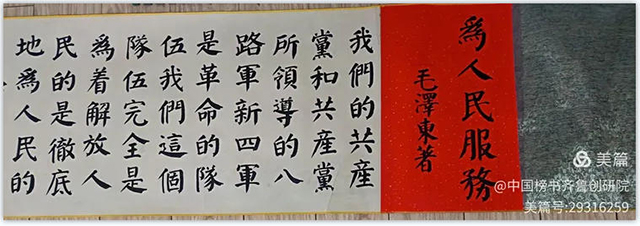 為人民服務
毛澤東著
我們的共產
黨和共產黨
所領導的八
路軍新四軍
是革命的隊
伍我們這個
隊伍完全是
為着解放人
民的是徹底
地為人民的
美篇
@中国榜书齐鲁创研院
美篇号:29316259